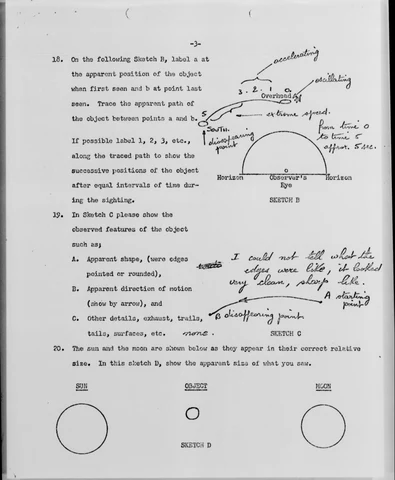 -3-
18. On the following Sketch B, label a at
the apparent position of the object
when first seen and b at point last
seen. Trace the apparent path of
the object between points a and b.
If possible label 1, 2, 3, etc.,
along the traced path to show the
successive positions of the object
after equal intervals of time dur-
ing the sighting.
accelerating
3. 2. 1 0
oscillating
Overhead
5
extreme speed.
SOUTH.
disappearing
point
from time 0
to time 5
approx. 5 sec.
Horizon Observer's Horizon
Eye
SKETCH B
19. In Sketch C please show the
observed features of the object
such as;
A. Apparent shape, (were edges
pointed or rounded),
B. Apparent direction of motion
(show by arrow), and
C. Other details, exhaust, trails,
tails, surfaces, etc. none.
I could not tell what the
edges were like, it looked
very clean, sharp like.
A starting
point
B disappearing point
SKETCH C
20. The sun and the moon are shown below as they appear in their correct relative
size. In this sketch D, show the apparent size of what you saw.
SUN OBJECT MOON
SKETCH D